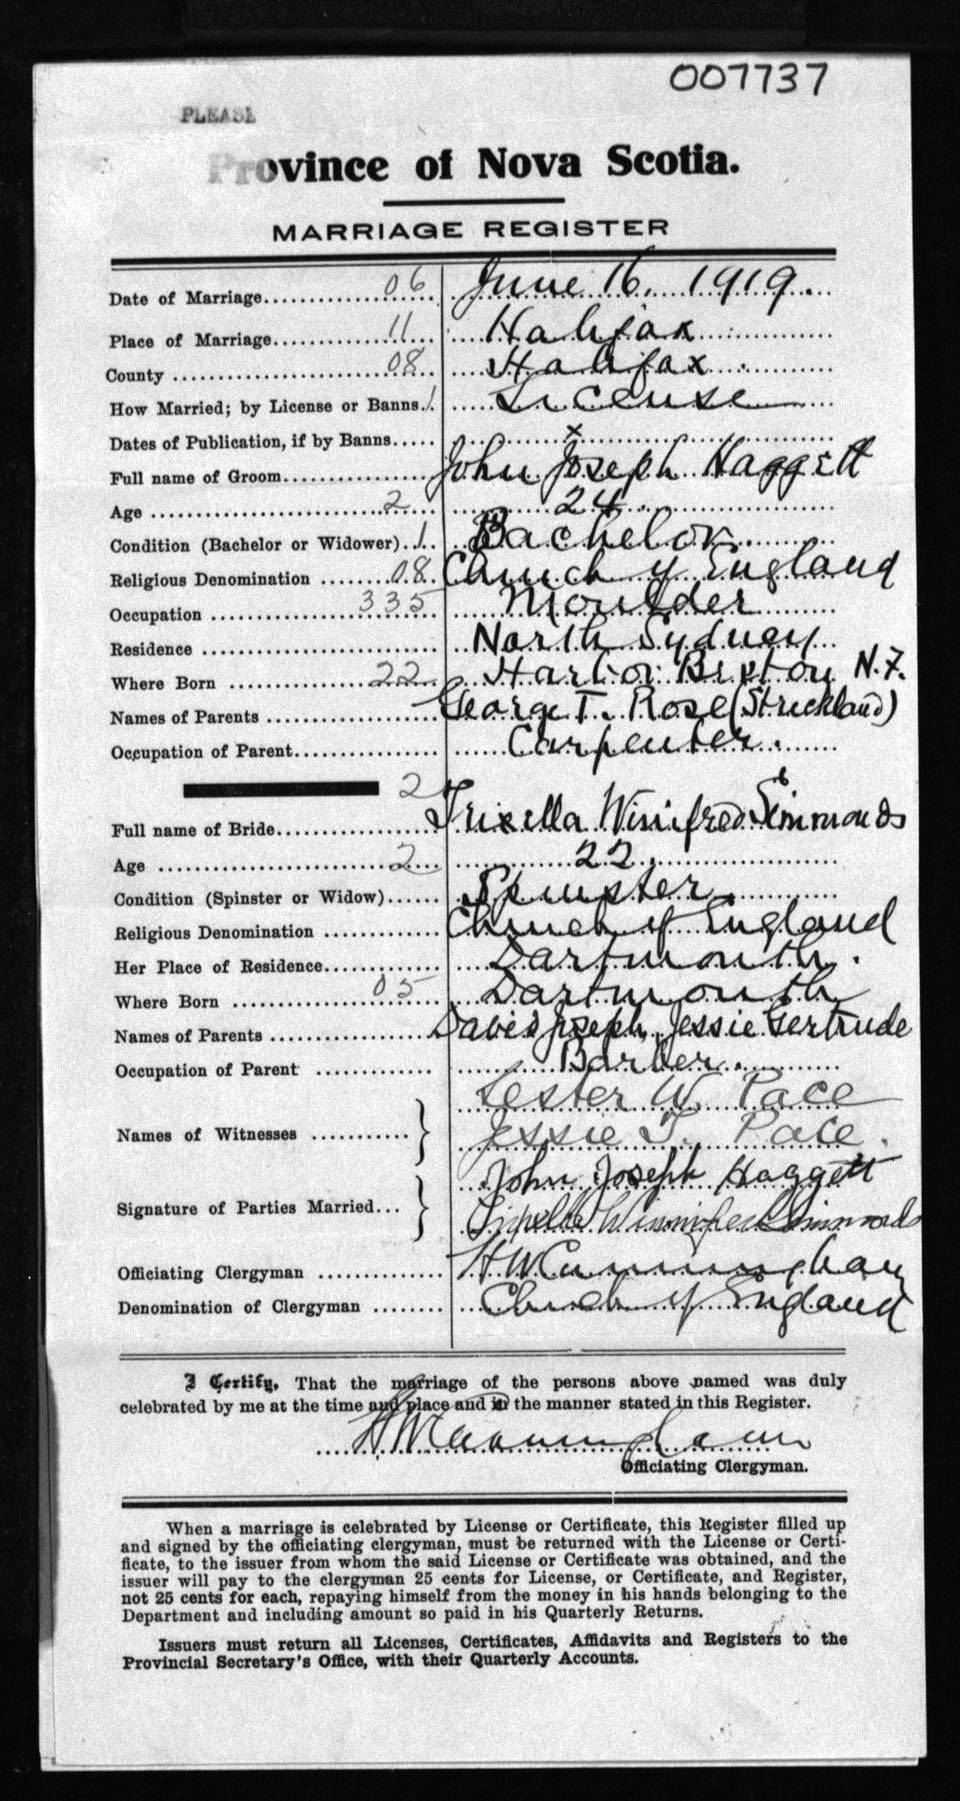 007737
PLEASE
Province of Nova Scotia.
MARRIAGE REGISTER
Date of Marriage 06 June 16. 1919.
Place of Marriage 11 Halifax
County 08 Halifax
How Married; by License or Banns 1 License
Dates of Publication, if by Banns x
Full name of Groom John Joseph Haggett
Age 2 24.
Condition (Bachelor or Widower) 1 Bachelor
Religious Denomination 08 Church of England
Occupation 335 Moulder
Residence North Sydney
Where Born 22 Harbor Breton N.F.
Names of Parents George T. Rose (Strickland)
Occupation of Parent Carpenter.
2
Full name of Bride Winifred Simmonds
Age 2 22.
Condition (Spinster or Widow) Spinster
Religious Denomination Church of England
Her Place of Residence Dartmouth.
Where Born 05 Dartmouth
Names of Parents David Joseph, Jessie Gertrude
Occupation of Parent Barber.
Names of Witnesses Lester W. Pace
Jessie T. Pace.
Signature of Parties Married John Joseph Haggett
Winnifred Simmonds
Officiating Clergyman H W Cunningham
Denomination of Clergyman Church of England
I Certify, That the marriage of the persons above named was duly
celebrated by me at the time and place and in the manner stated in this Register.
H W Cunningham
Officiating Clergyman.
When a marriage is celebrated by License or Certificate, this Register filled up
and signed by the officiating clergyman, must be returned with the License or Certi-
ficate, to the issuer from whom the said License or Certificate was obtained, and the
issuer will pay to the clergyman 25 cents for License, or Certificate, and Register,
not 25 cents for each, repaying himself from the money in his hands belonging to the
Department and including amount so paid in his Quarterly Returns.
Issuers must return all Licenses, Certificates, Affidavits and Registers to the
Provincial Secretary's Office, with their Quarterly Accounts.